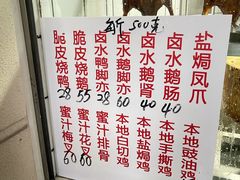 500克
脆皮烧鸭
28
脆皮烧鹅
55
卤水鸭脚亦
38
卤水鹅脚亦
60
卤水鹅肾
40
卤水鹅肠
40
盐焗凤爪
蜜汁梅叉
60
蜜汁花叉
60
蜜汁排骨
本地白切鸡
本地盐焗鸡
本地手撕鸡
本地豉油鸡